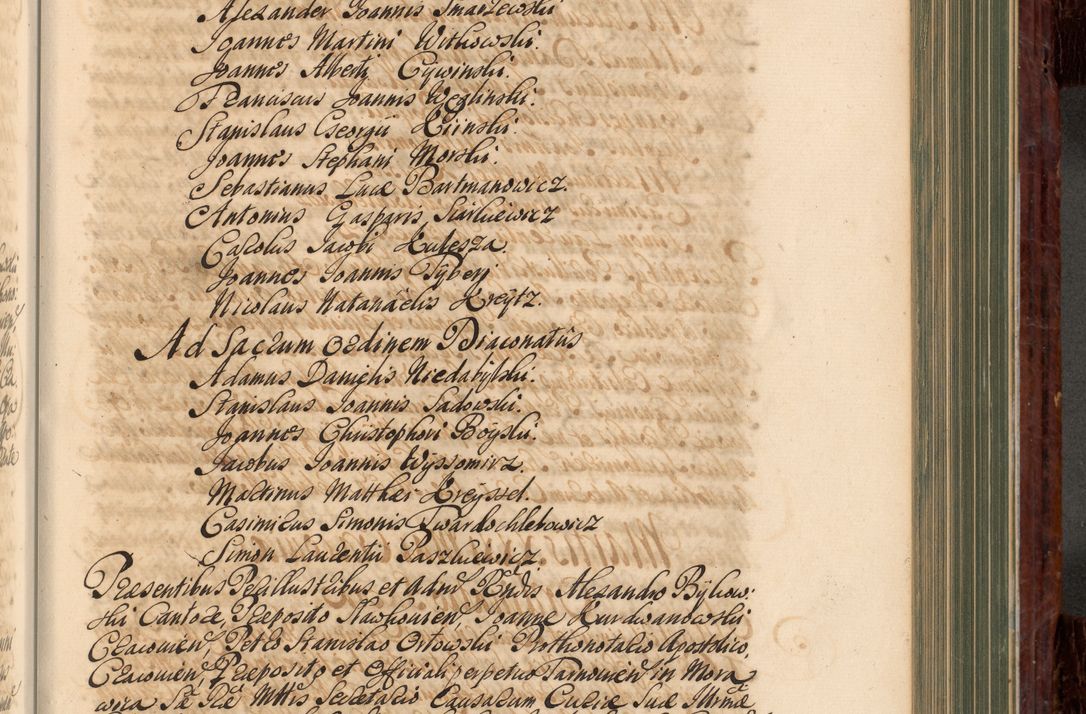 Alexander Joannis Smarzewski
Joannes Martini Witkowski.
Joannes Alberti Cywinski.
Franciscus Joannis Węglinski.
Stanislaus Georgii Kiinski.
Joannes Stephani Morski.
Sebastianus Lucæ Bartmanowicz.
Antonius Gasparis Siarkiewicz
Carolus Jacobi Kulesza.
Joannes Joannis Tyberj
Nicolaus Natanaëlis Kreÿtz.
Ad Sacrum Ordinem Diaconatûs
Adamus Danielis Niedabÿlski.
Stanislaus Joannis Sadowski.
Joannes Christophori Boÿski.
Jacobus Joannis Wyssomirz.
Martinus Matthæi Kreÿssel.
Casimirus Simonis Twardochlebowicz
Simon Laurentii Paszkiewicz.
Præsentibus Perillustribus et Adm Rndis Alexandro Bÿkow:
ski Cantore, Præposito Sławkovien, Joanne Kurdwanowski
Cracovien, Petro Stanislao Orłowski Prothonotario Apostolico,
Cracovien, Præposito et Officiali perpetuo Tarnovien in Mora
wica Sæ Ræ Mttis Secretario Causarum Curiæ Suæ Illrmæ